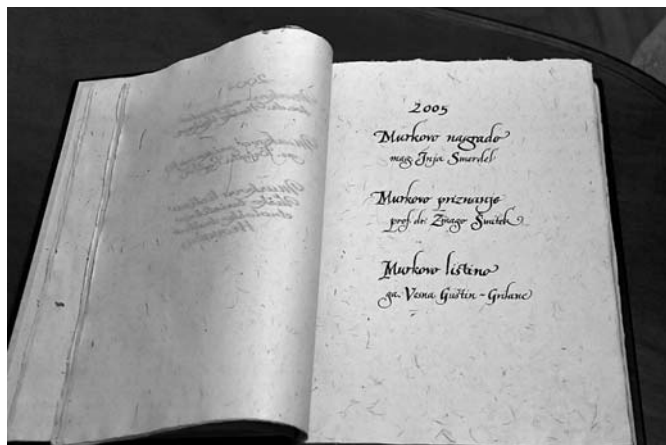 2005
Murkovo nagrado
mag. Inja Smerdel
Murkovo priznanje
prof. dr. Zmago Šmitek
Murkovo listino
ga. Vesna Guštin - Grilanc